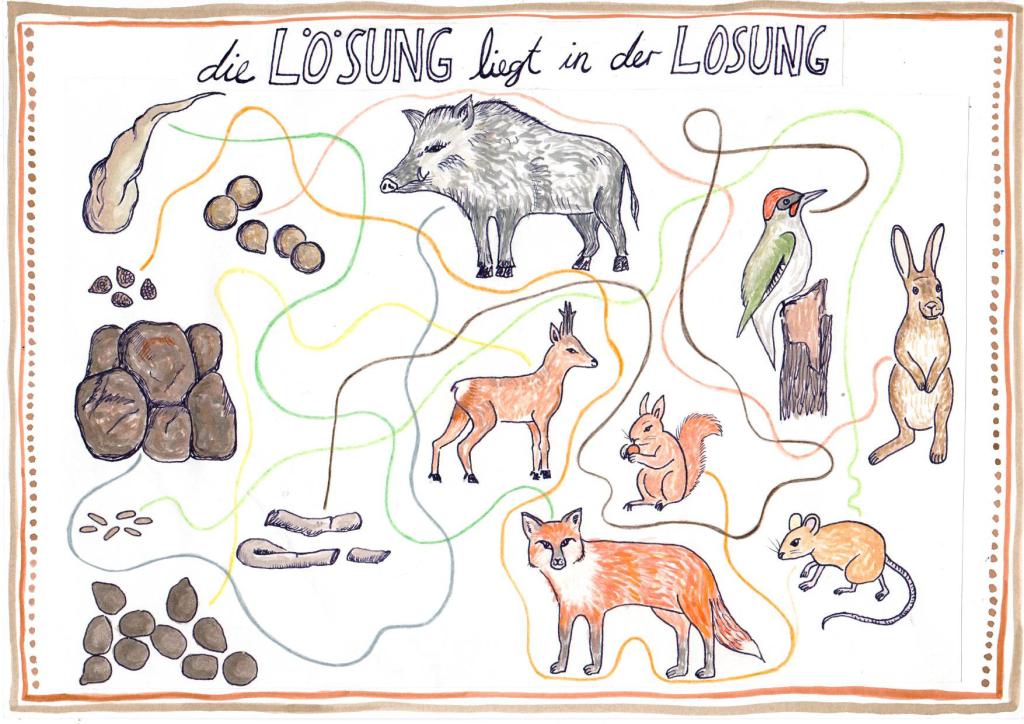 die LÖSUNG liegt in der LOSUNG